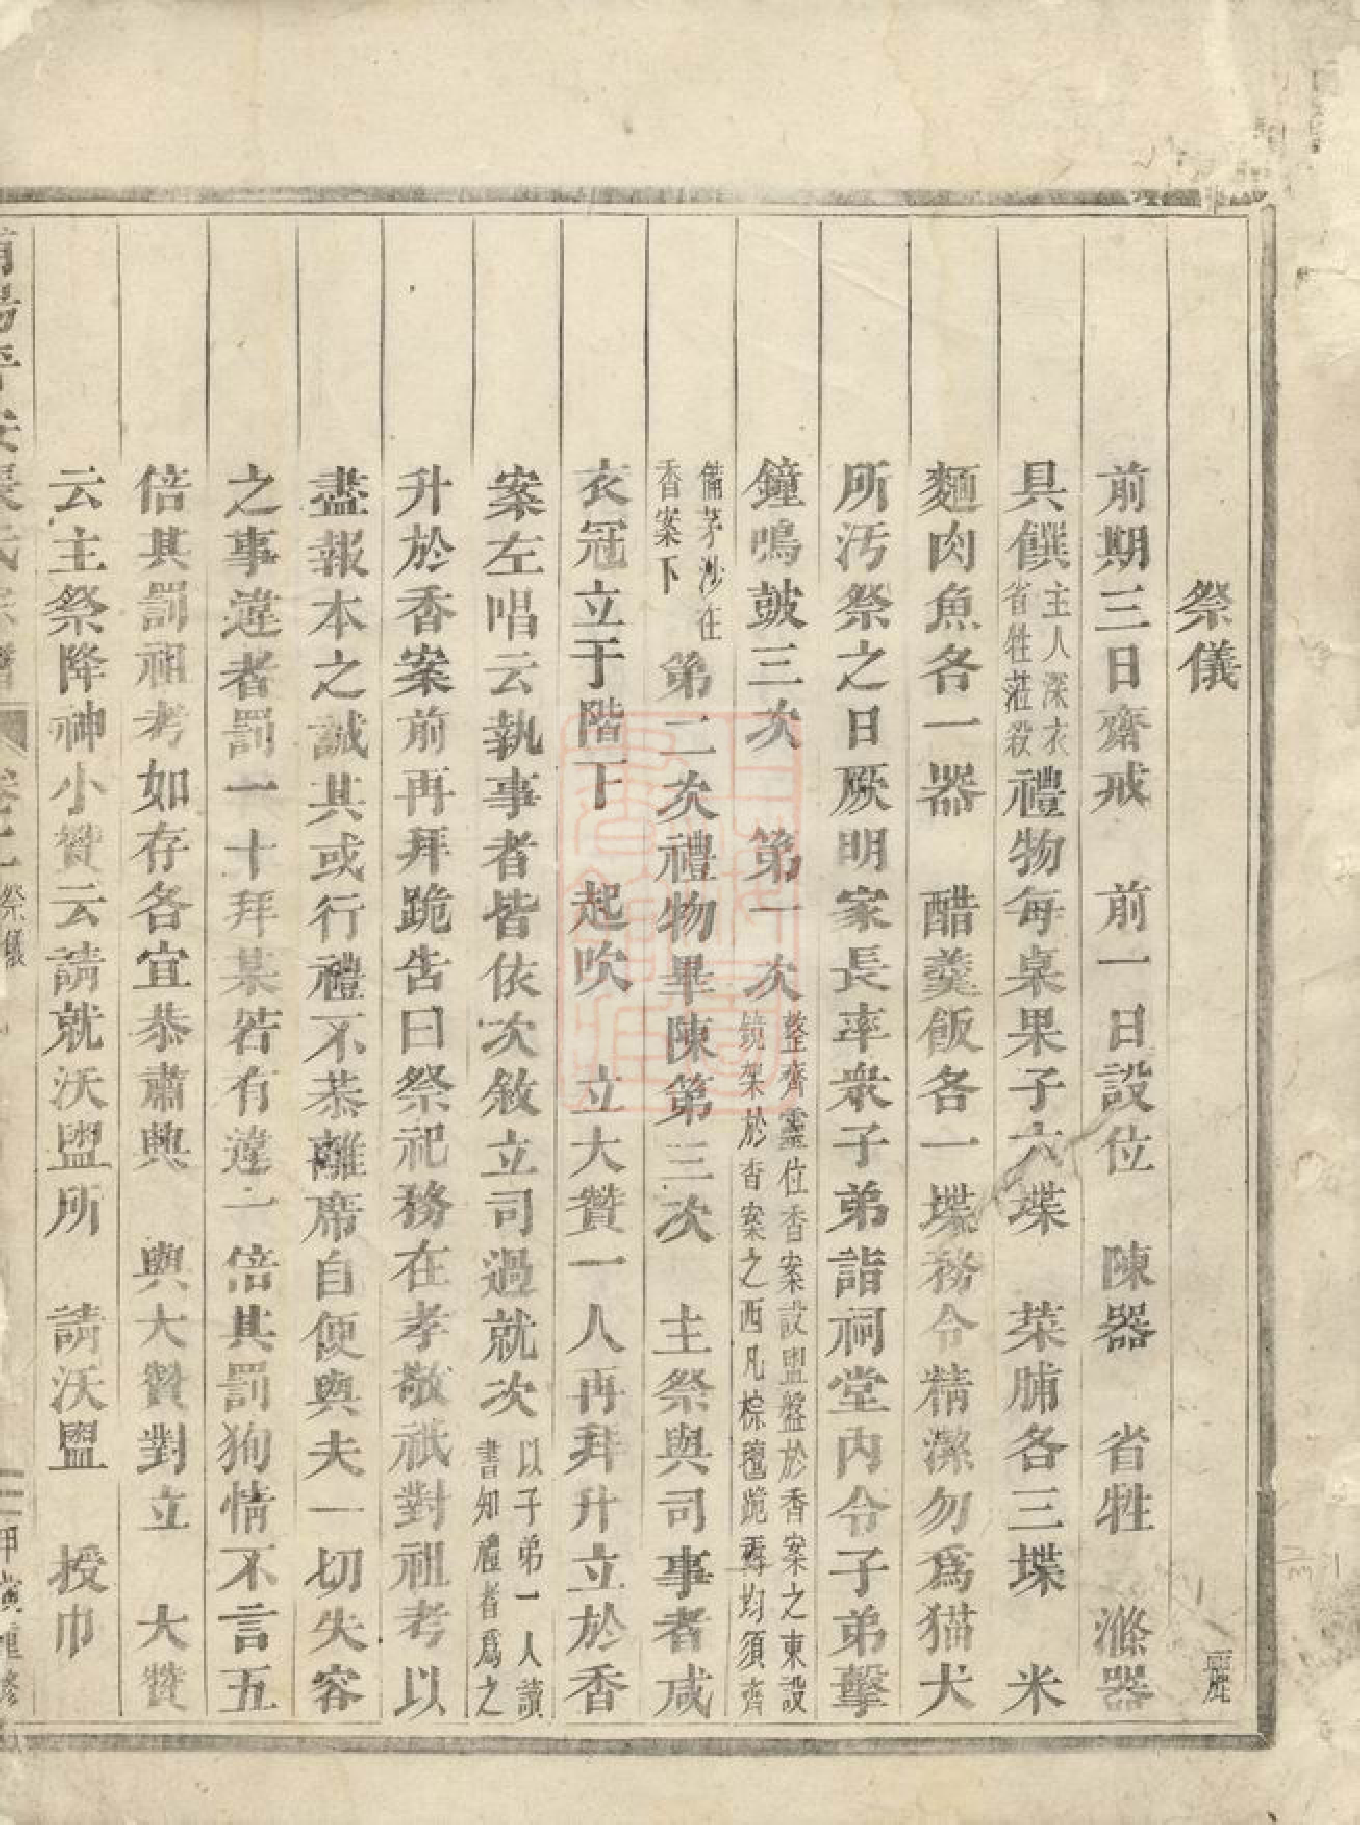 祭儀
麗
前期三日齋戒 前一日設位 陳器 省牲 滌器
具饌主人深衣省牲蒞殺禮物每桌果子六堞 菜脯各三堞 米
麵肉魚各一器 醋羹飯各一堞務令精潔勿爲猫犬
所汚祭之日厥明家長率衆子弟詣祠堂內令子弟擊
鐘鳴鼓三次 第一次整齊靈位香案設盥盤於香案之東設鏡架於香案之西凡棕毯跪褥均須齊
備茅沙在香案下 第二次禮物畢陳第三次 主祭與司事者咸
衣冠立于階下 起吹 立大贊一人再拜升立於香
案左唱云執事者皆依次敘立司過就次以子弟一人讀書知禮者爲之
升於香案前再拜跪告曰祭祀務在孝敬祇對祖考以
盡報本之誠其或行禮不恭離席自便與夫一切失容
之事違者罰一十拜某若有違一倍其罰狥情不言五
倍其罰祖考如存各宜恭肅興 與大贊對立 大贊
云主祭降神小贊云請就沃盥所 請沃盥 授巾
祭儀